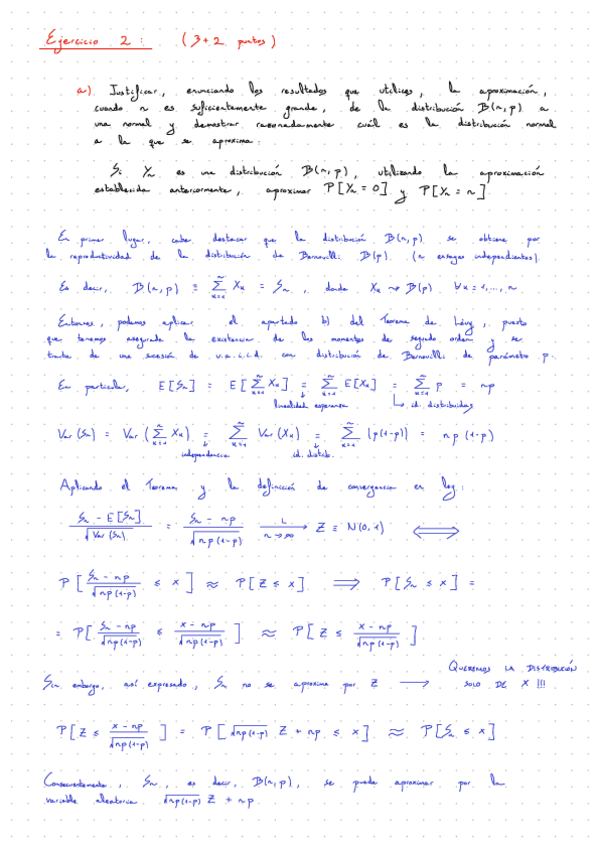 Ejercicio 2: (3+2 puntos)
a) Justificar, enunciando los resultados que utilices, la aproximación,
cuando n es suficientemente grande, de la distribución B(n,p) a
una normal y demostrar razonadamente cuál es la distribución normal
a la que se aproxima.
Si Yₙ es una distribución B(n,p), utilizando la aproximación
establecida anteriormente, aproximar P[Yₙ = 0] y P[Yₙ = n]
En primer lugar, cabe destacar que la distribución B(n,p) se obtiene por
la reproductividad de la distribución de Bernoulli B(p). (n ensayos independientes)
Es decir, B(n,p) ≡ ∑ₖ₌₁ⁿ Xₖ = Sₙ, donde Xₖ ⇝ B(p) ∀k=1,...,n
Entonces, podemos aplicar el apartado b) del Teorema de Lévy, puesto
que tenemos asegurada la existencia de los momentos de segundo orden y se
trata de una sucesión de v.a.i.i.d. con distribución de Bernoulli de parámetro p.
En particular, E[Sₙ] = E[∑ₖ₌₁ⁿ Xₖ] = ∑ₖ₌₁ⁿ E[Xₖ] = ∑ₖ₌₁ⁿ p = np
linealidad esperanza id. distribuidas
Var(Sₙ) = Var(∑ₖ₌₁ⁿ Xₖ) = ∑ₖ₌₁ⁿ Var(Xₖ) = ∑ₖ₌₁ⁿ (p(1-p)) = np(1-p)
independencia id. distrib.
Aplicando el Teorema y la definición de convergencia en ley:
(Sₙ - E[Sₙ])/√Var(Sₙ) = (Sₙ - np)/√np(1-p) —L→ n→∞ Z ≡ N(0,1) ⟺
P[(Sₙ - np)/√np(1-p) ≤ x] ≈ P[Z ≤ x] ⟹ P[Sₙ ≤ x] =
= P[(Sₙ - np)/√np(1-p) ≤ (x - np)/√np(1-p)] ≈ P[Z ≤ (x - np)/√np(1-p)]
QUEREMOS LA DISTRIBUCIÓN
Sin embargo, así expresado, Sₙ no se aproxima por Z ⟶ SOLO DE X !!!
P[Z ≤ (x - np)/√np(1-p)] = P[√np(1-p) Z + np ≤ x] ≈ P[Sₙ ≤ x]
Consecuentemente, Sₙ, es decir, B(n,p), se puede aproximar por la
variable aleatoria √np(1-p) Z + np.